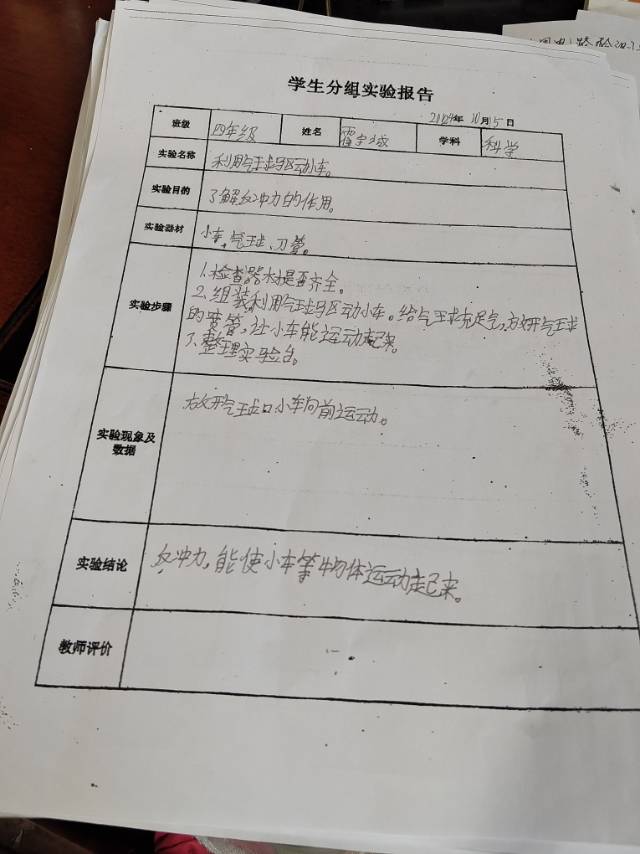 学生分组实验报告
2024年 10月15日
班级 四年级 姓名 雷宇城 学科 科学
实验名称 利用气球驱动小车。
实验目的 了解反冲力的作用。
实验器材 小车、气球、刀管。
实验步骤
1.检查器材是否齐全。
2、组装利用气球驱动小车。给气球充足气,放开气球
的喷管,让小车能运动起来。
3、整理实验台。
实验现象及
数据
放开气球口小车向前运动。
实验结论 反冲力,能使小车等物体运动起来。
教师评价